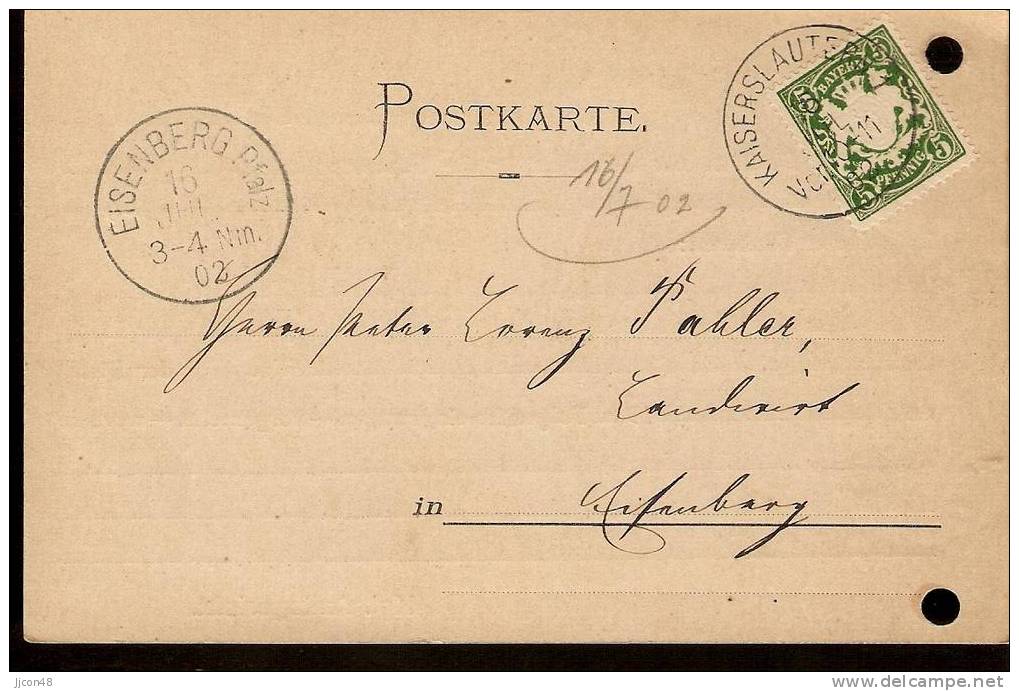 POSTKARTE.
KAISERSLAUTER
Vor 11
BAYERN
5 5
5 5
PFENNIG
EISENBERG Pfalz
16
JUL.
3-4 Nm.
02
16/7 02
Herrn Peter Lorenz Pahler,
Landwirt
in Eisenberg
jjcon48
delcampe.net